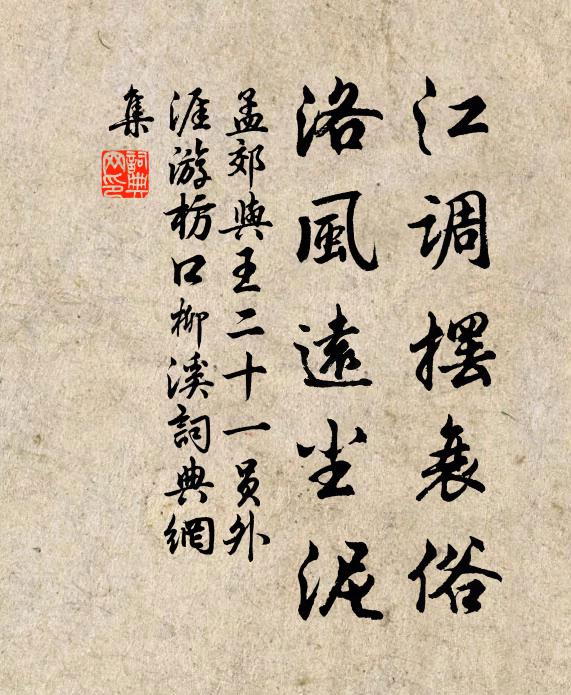 江调摆衰俗
洛風遠尘泥
孟郊與王二十一員外
涯游枋口柳溪詞典網
集
詞典網印